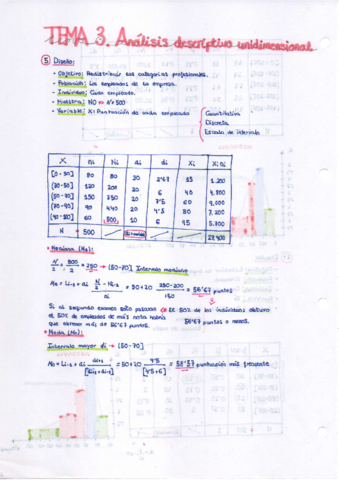 TEMA 3. Análisis descriptivo unidimensional
5 Diseño:
- Objetivo: Redistribuir las categorías profesionales.
- Población: Los empleados de la empresa.
- Individuo: Cada empleado.
- Muestra: NO N=500
- Variable: X= Puntuación de cada empleado
Cuantitativa
Discreta
Escala de intervalo
X ni Ni ai di Xi Xi·ni
[0-30] 80 80 30 2'67 15 1.200
(30-50] 120 200 20 6 40 4.800
(50-70] 150 350 20 7'5 60 9.000
(70-90] 90 440 20 4'5 80 7.200
(90-100] 60 500 10 6 95 5.700
N 500 27.900
· Mediana (Me):
N/2 = 500/2 = 250 → (50-70] Intervalo mediano
Me = Li-1 + ai N/2 - Ni-1 / ni = 50+20 250-200 / 150 = 56'67 puntos
Si al segundo examen solo pasara el 50% de empleados de más nota habría que obtener más de 56'67 puntos.
El 50% de los individuos obtuvo 56'67 puntos o menos.
· Moda (Mo):
Intervalo mayor di → (50-70]
Mo = Li-1 + ai di+1 / [di-1 + di+1] = 50+20 4'5 / [4'5+6] = 58'57 puntuación más frecuente